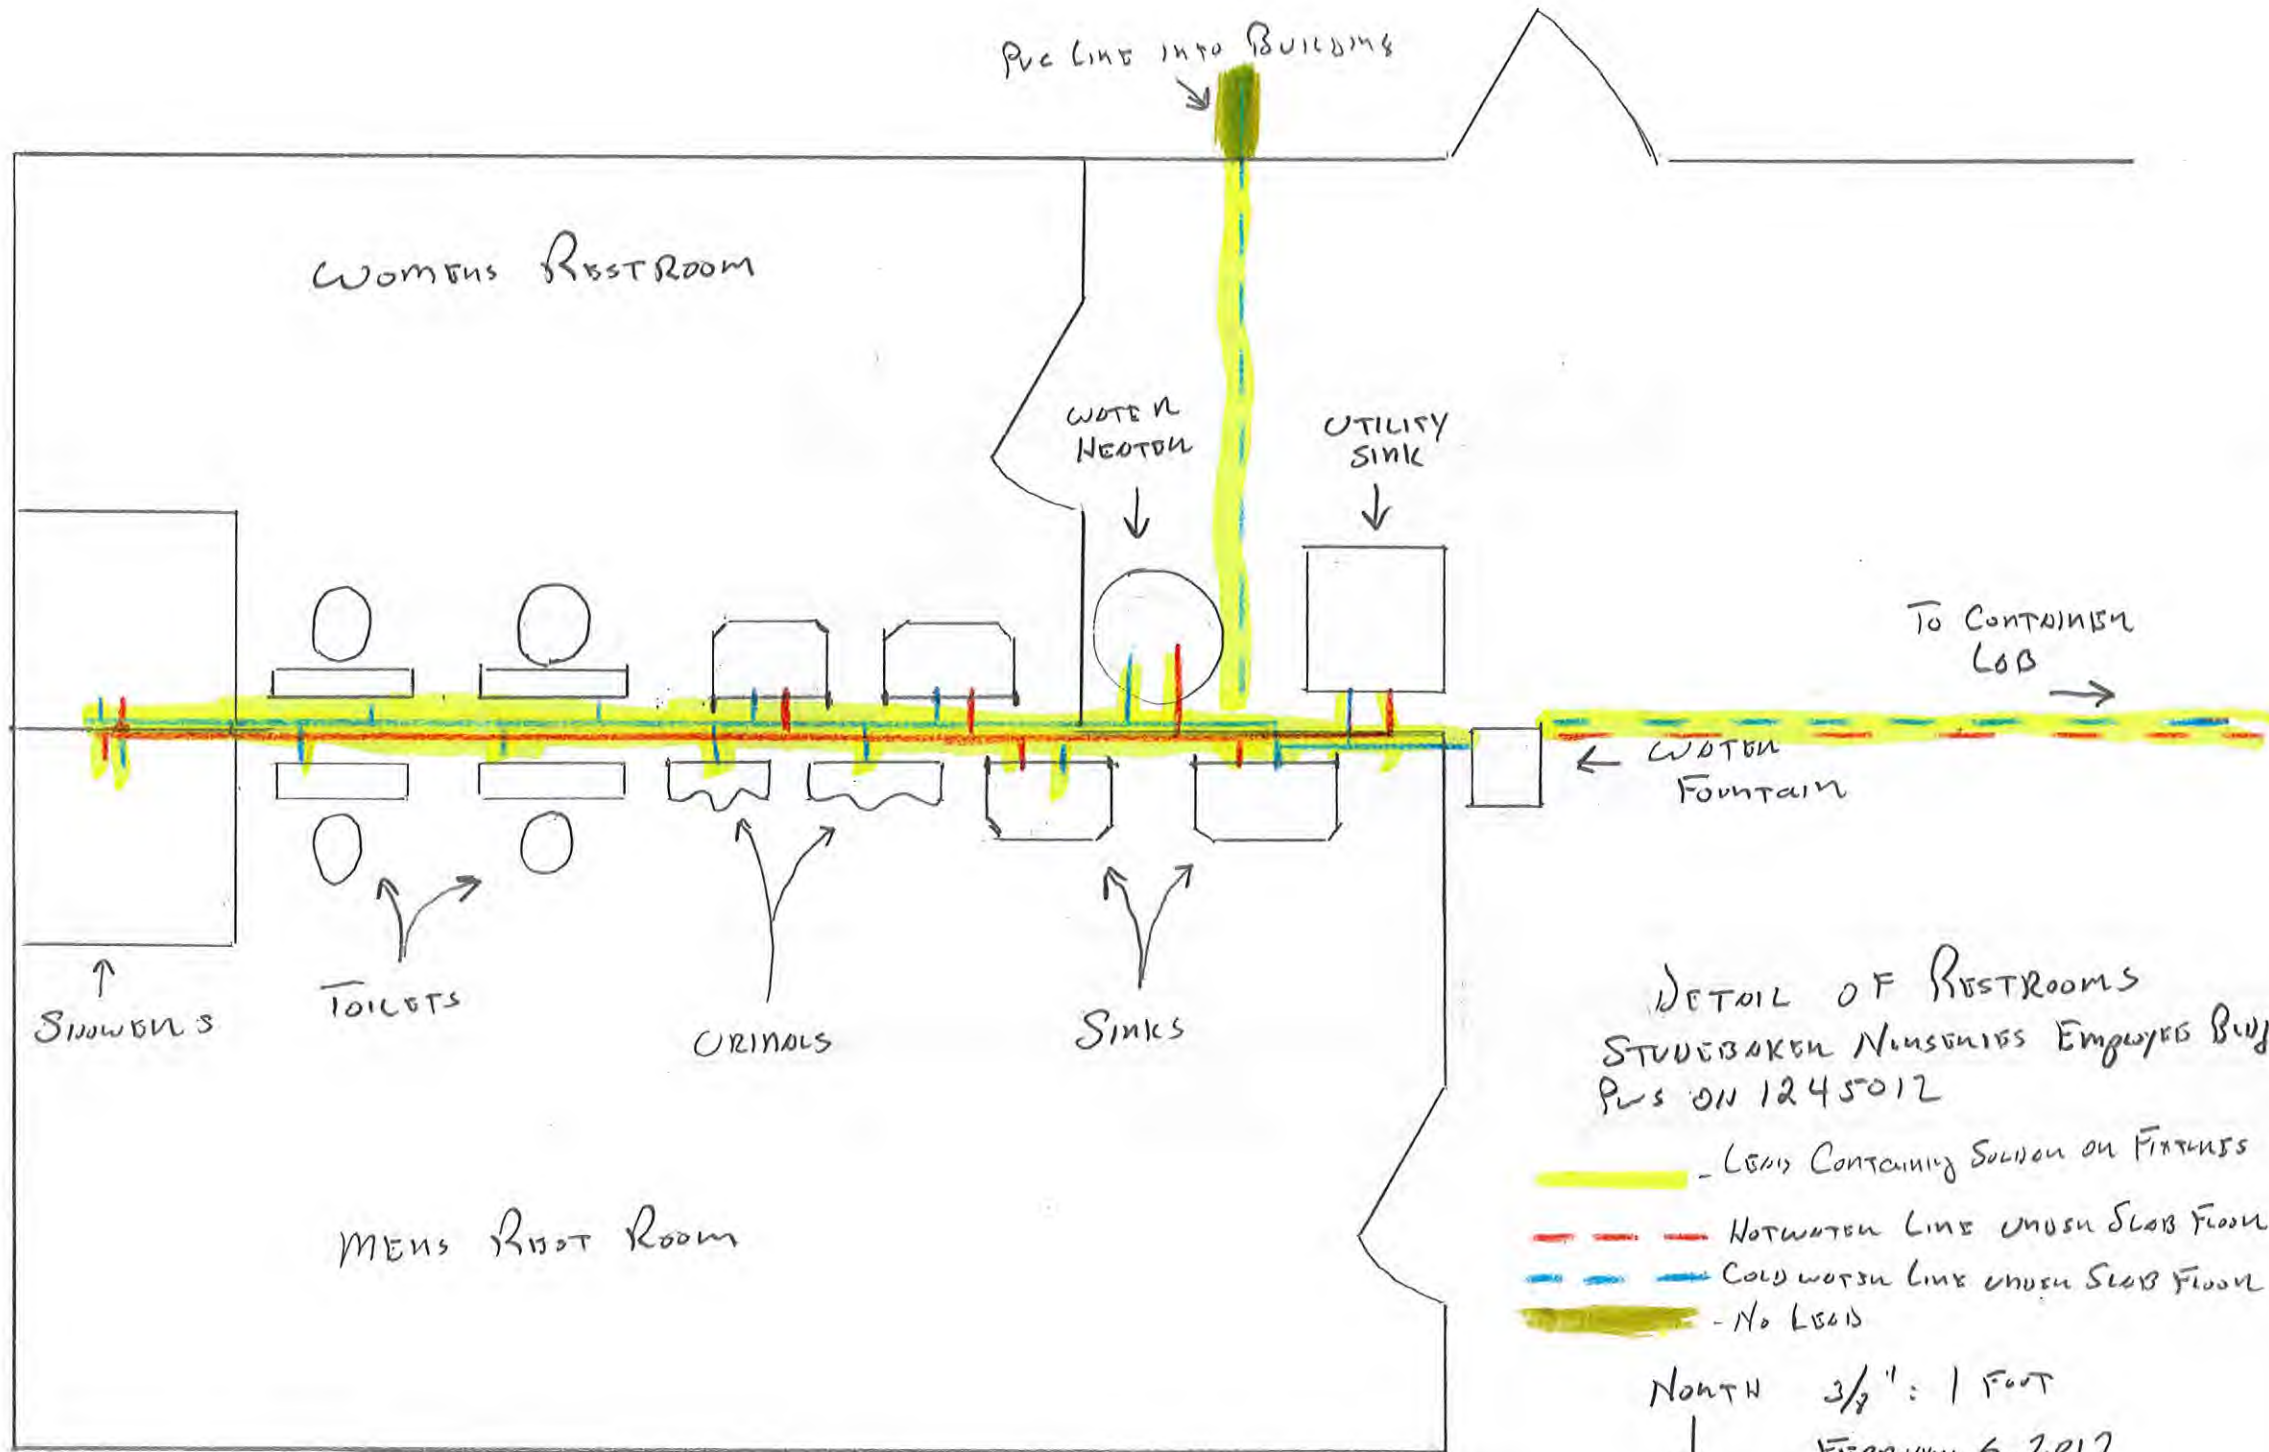 PVC LINE INTO BUILDING
WOMENS RESTROOM
WATER
HEATER
UTILITY
SINK
TO CONTAINER
LAB
WATER
FOUNTAIN
SHOWERS
TOILETS
URINALS
SINKS
MENS REST ROOM
DETAIL OF RESTROOMS
STUDEBAKER NURSERIES EMPLOYEE BLDG
PWS OH 1245012
- LEAD CONTAINING SOLDER OR FIXTURES
HOTWATER LINE UNDER SLAB FLOOR
COLD WATER LINE UNDER SLAB FLOOR
- NO LEAD
NORTH 3/8" : 1 FOOT
FEBRUARY 6 2012